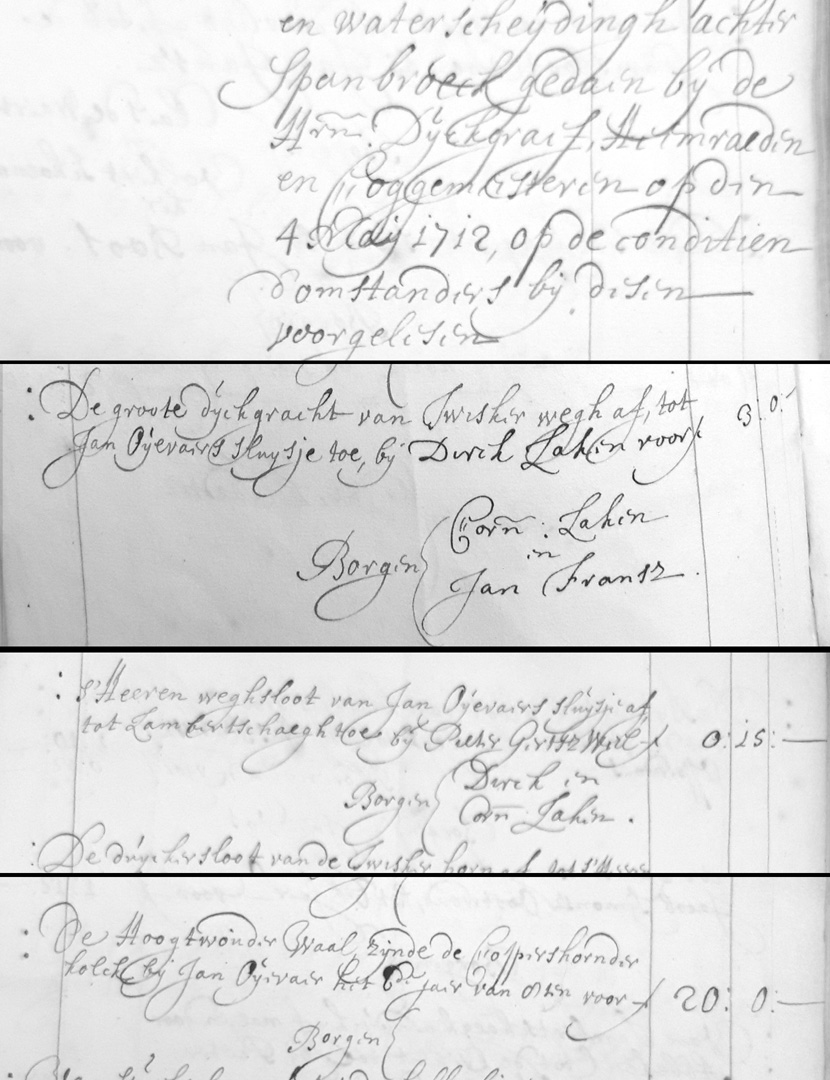 en waterscheÿdingh achter
Spanbroeck gedaen bÿ de
Hrñ. Dÿckgraef, Heemraeden
en Coggemeesteren op den
4. Maÿ 1712, op de conditien
d'omstanders bÿ desen
voorgelesen
: De groote dÿckgracht van Twisker wegh af, tot
Jan Oÿevaers sluysje toe, bÿ Dirck Laken voor 3: 0:
Corñ: Laken
en
Borgen
Jan Fransz
: s'Heeren weghsloot van Jan Oÿevaers sluÿsje af,
tot Lambertschaegh toe bÿ Pieter Gertsz Weel 0: 15: —
Dirck en
Borgen
Corñ: Laken.
: De druÿckersloot van de Twisker horn af tot s'Heeren
: De Hoogtwouder Waal, zÿnde de Cospershornder
kolck bÿ Jan Oÿevaer het 6de jaer van 8ten voor 20: 0: —
Borgen